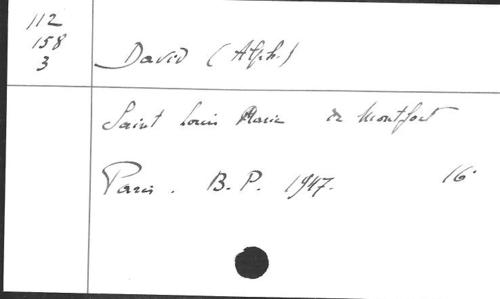 112
158
3
David (Alph.)
Saint Louis Marie de Montfort
Paris. B.P. 1947. 16°